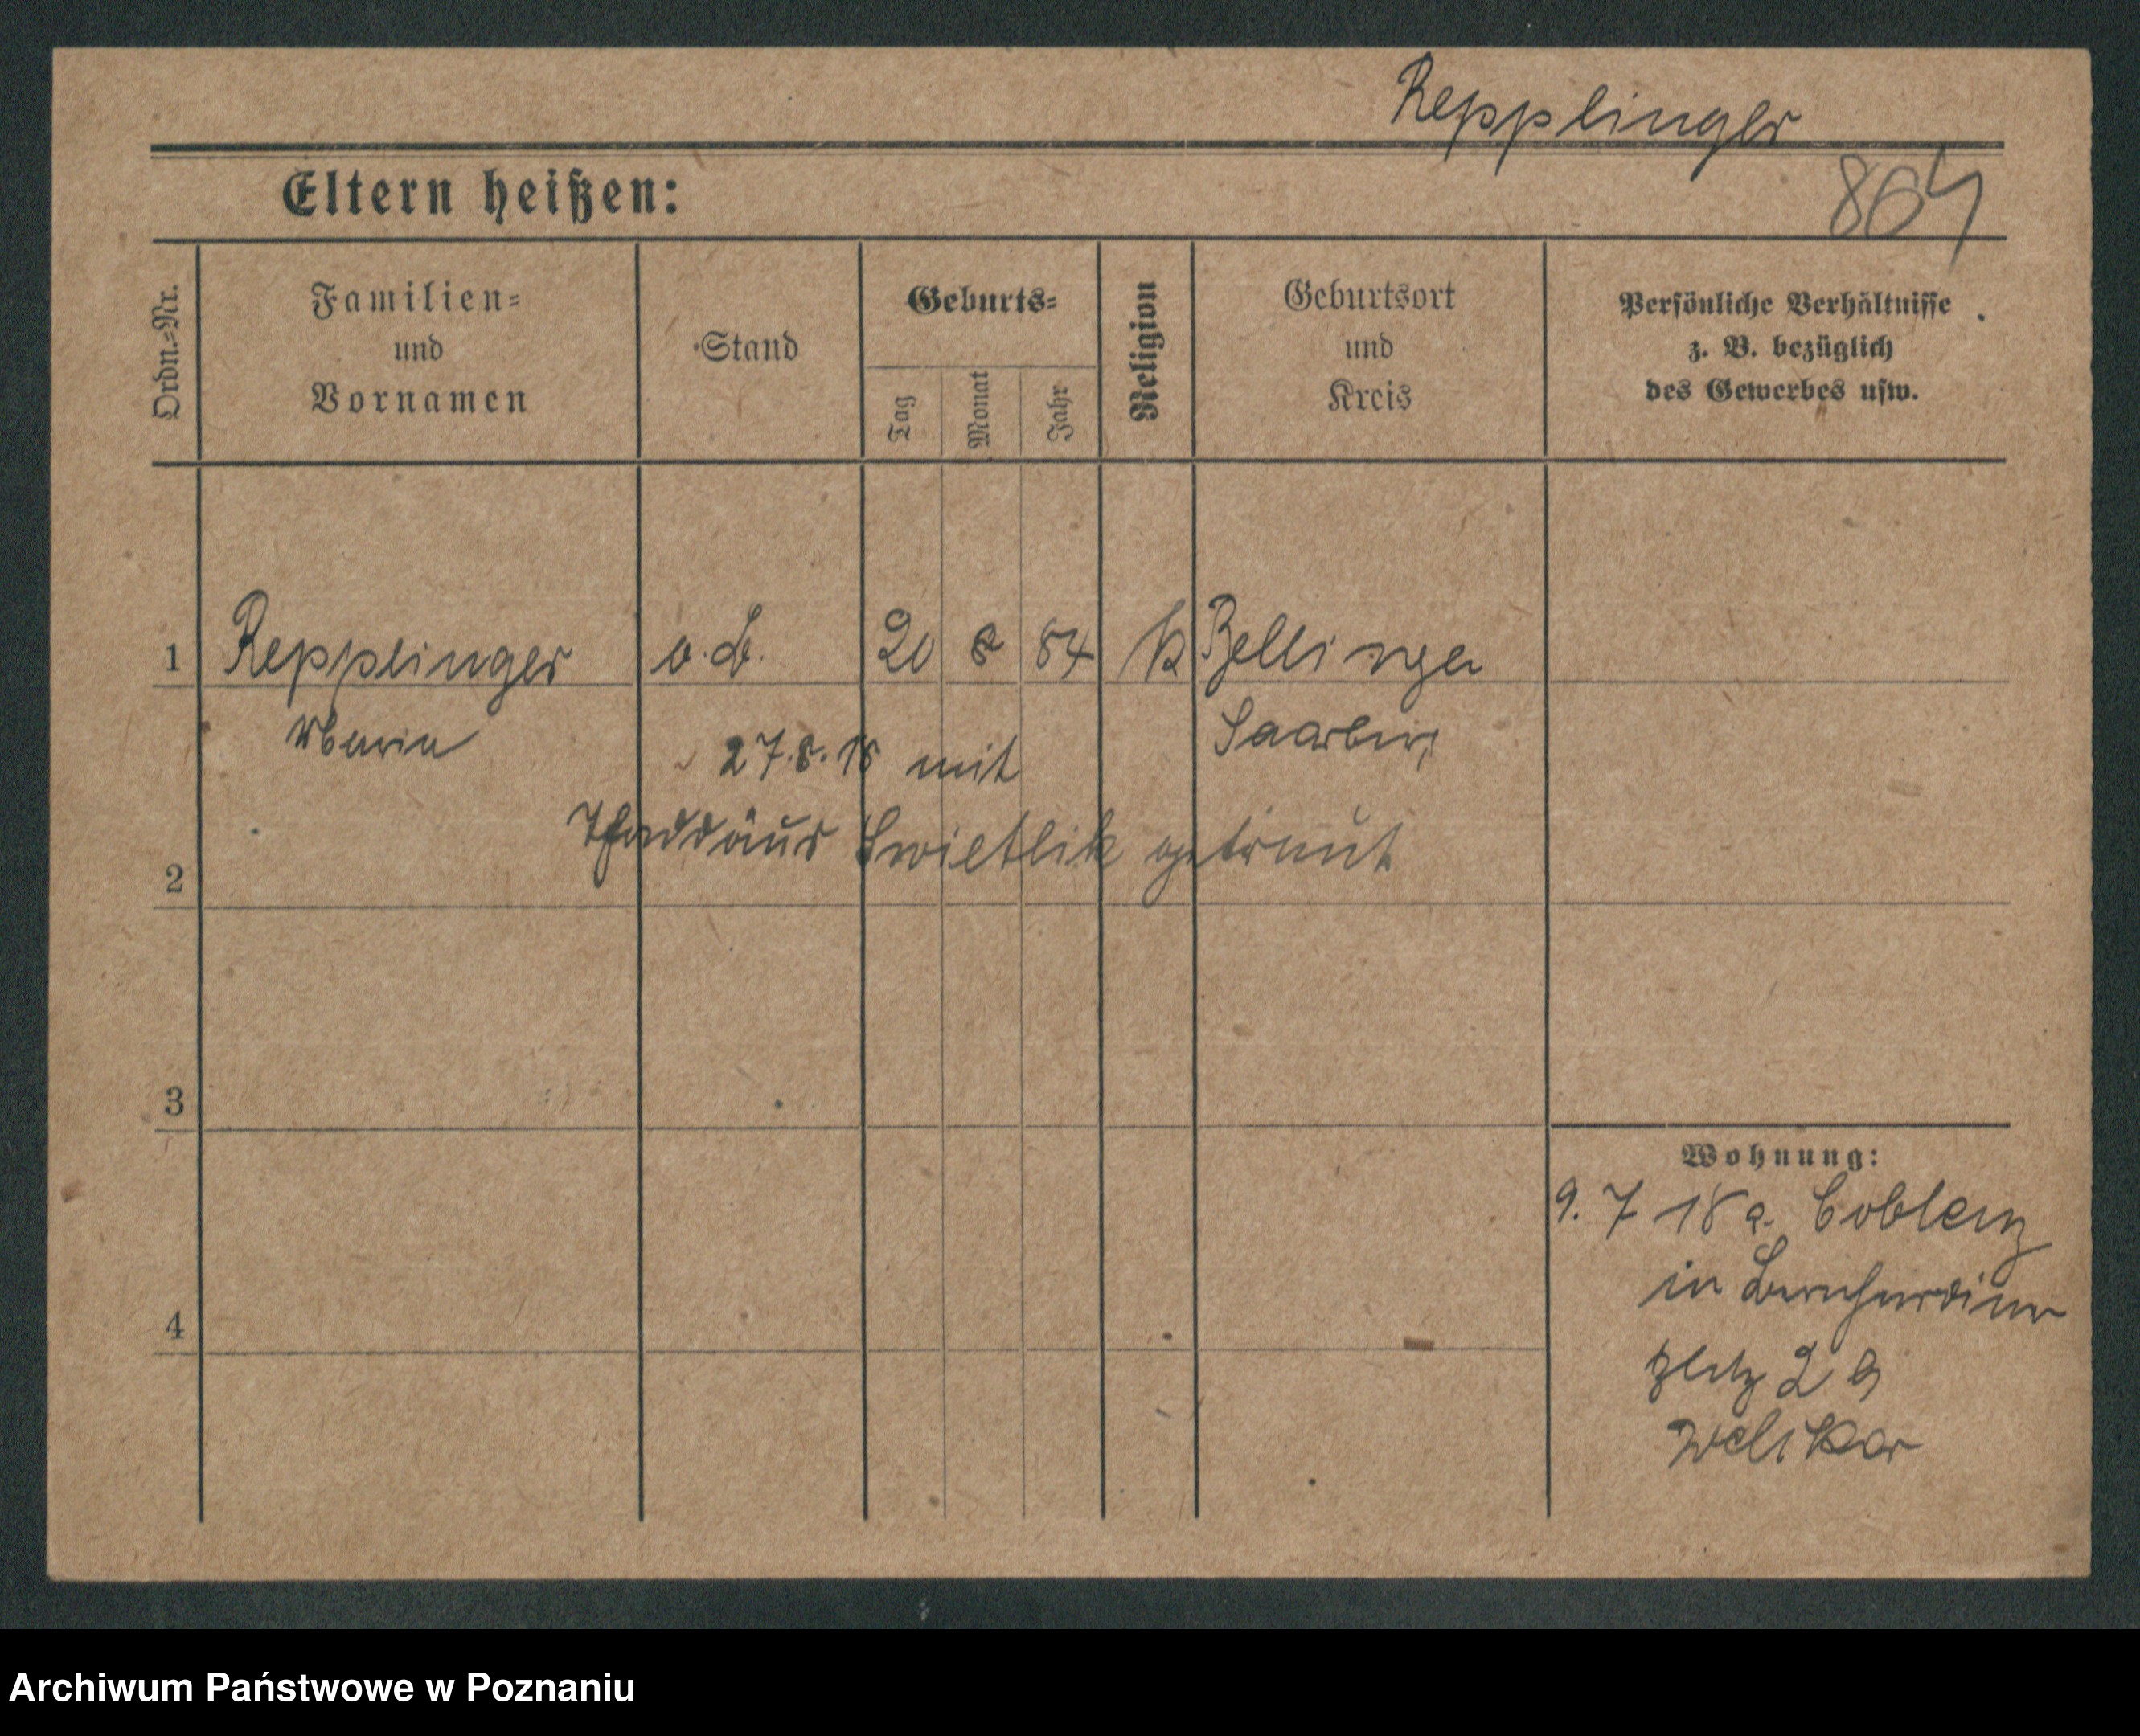 Repplinger
864
Eltern heißen:
Ordn.=Nr.
Familien=
und
Vornamen
Stand
Geburts=
Tag
Monat
Jahr
Religion
Geburtsort
und
Kreis
Persönliche Verhältnisse
z. B. bezüglich
des Gewerbes usw.
1 Repplinger o.B. 20 8 84 k
27.8.18 mit
Thaddäus Swietlik getraut
2
3
4
Wohnung:
9. 7 18 a. Coblenz
in Bernhardiner
platz 2
Archiwum Państwowe w Poznaniu